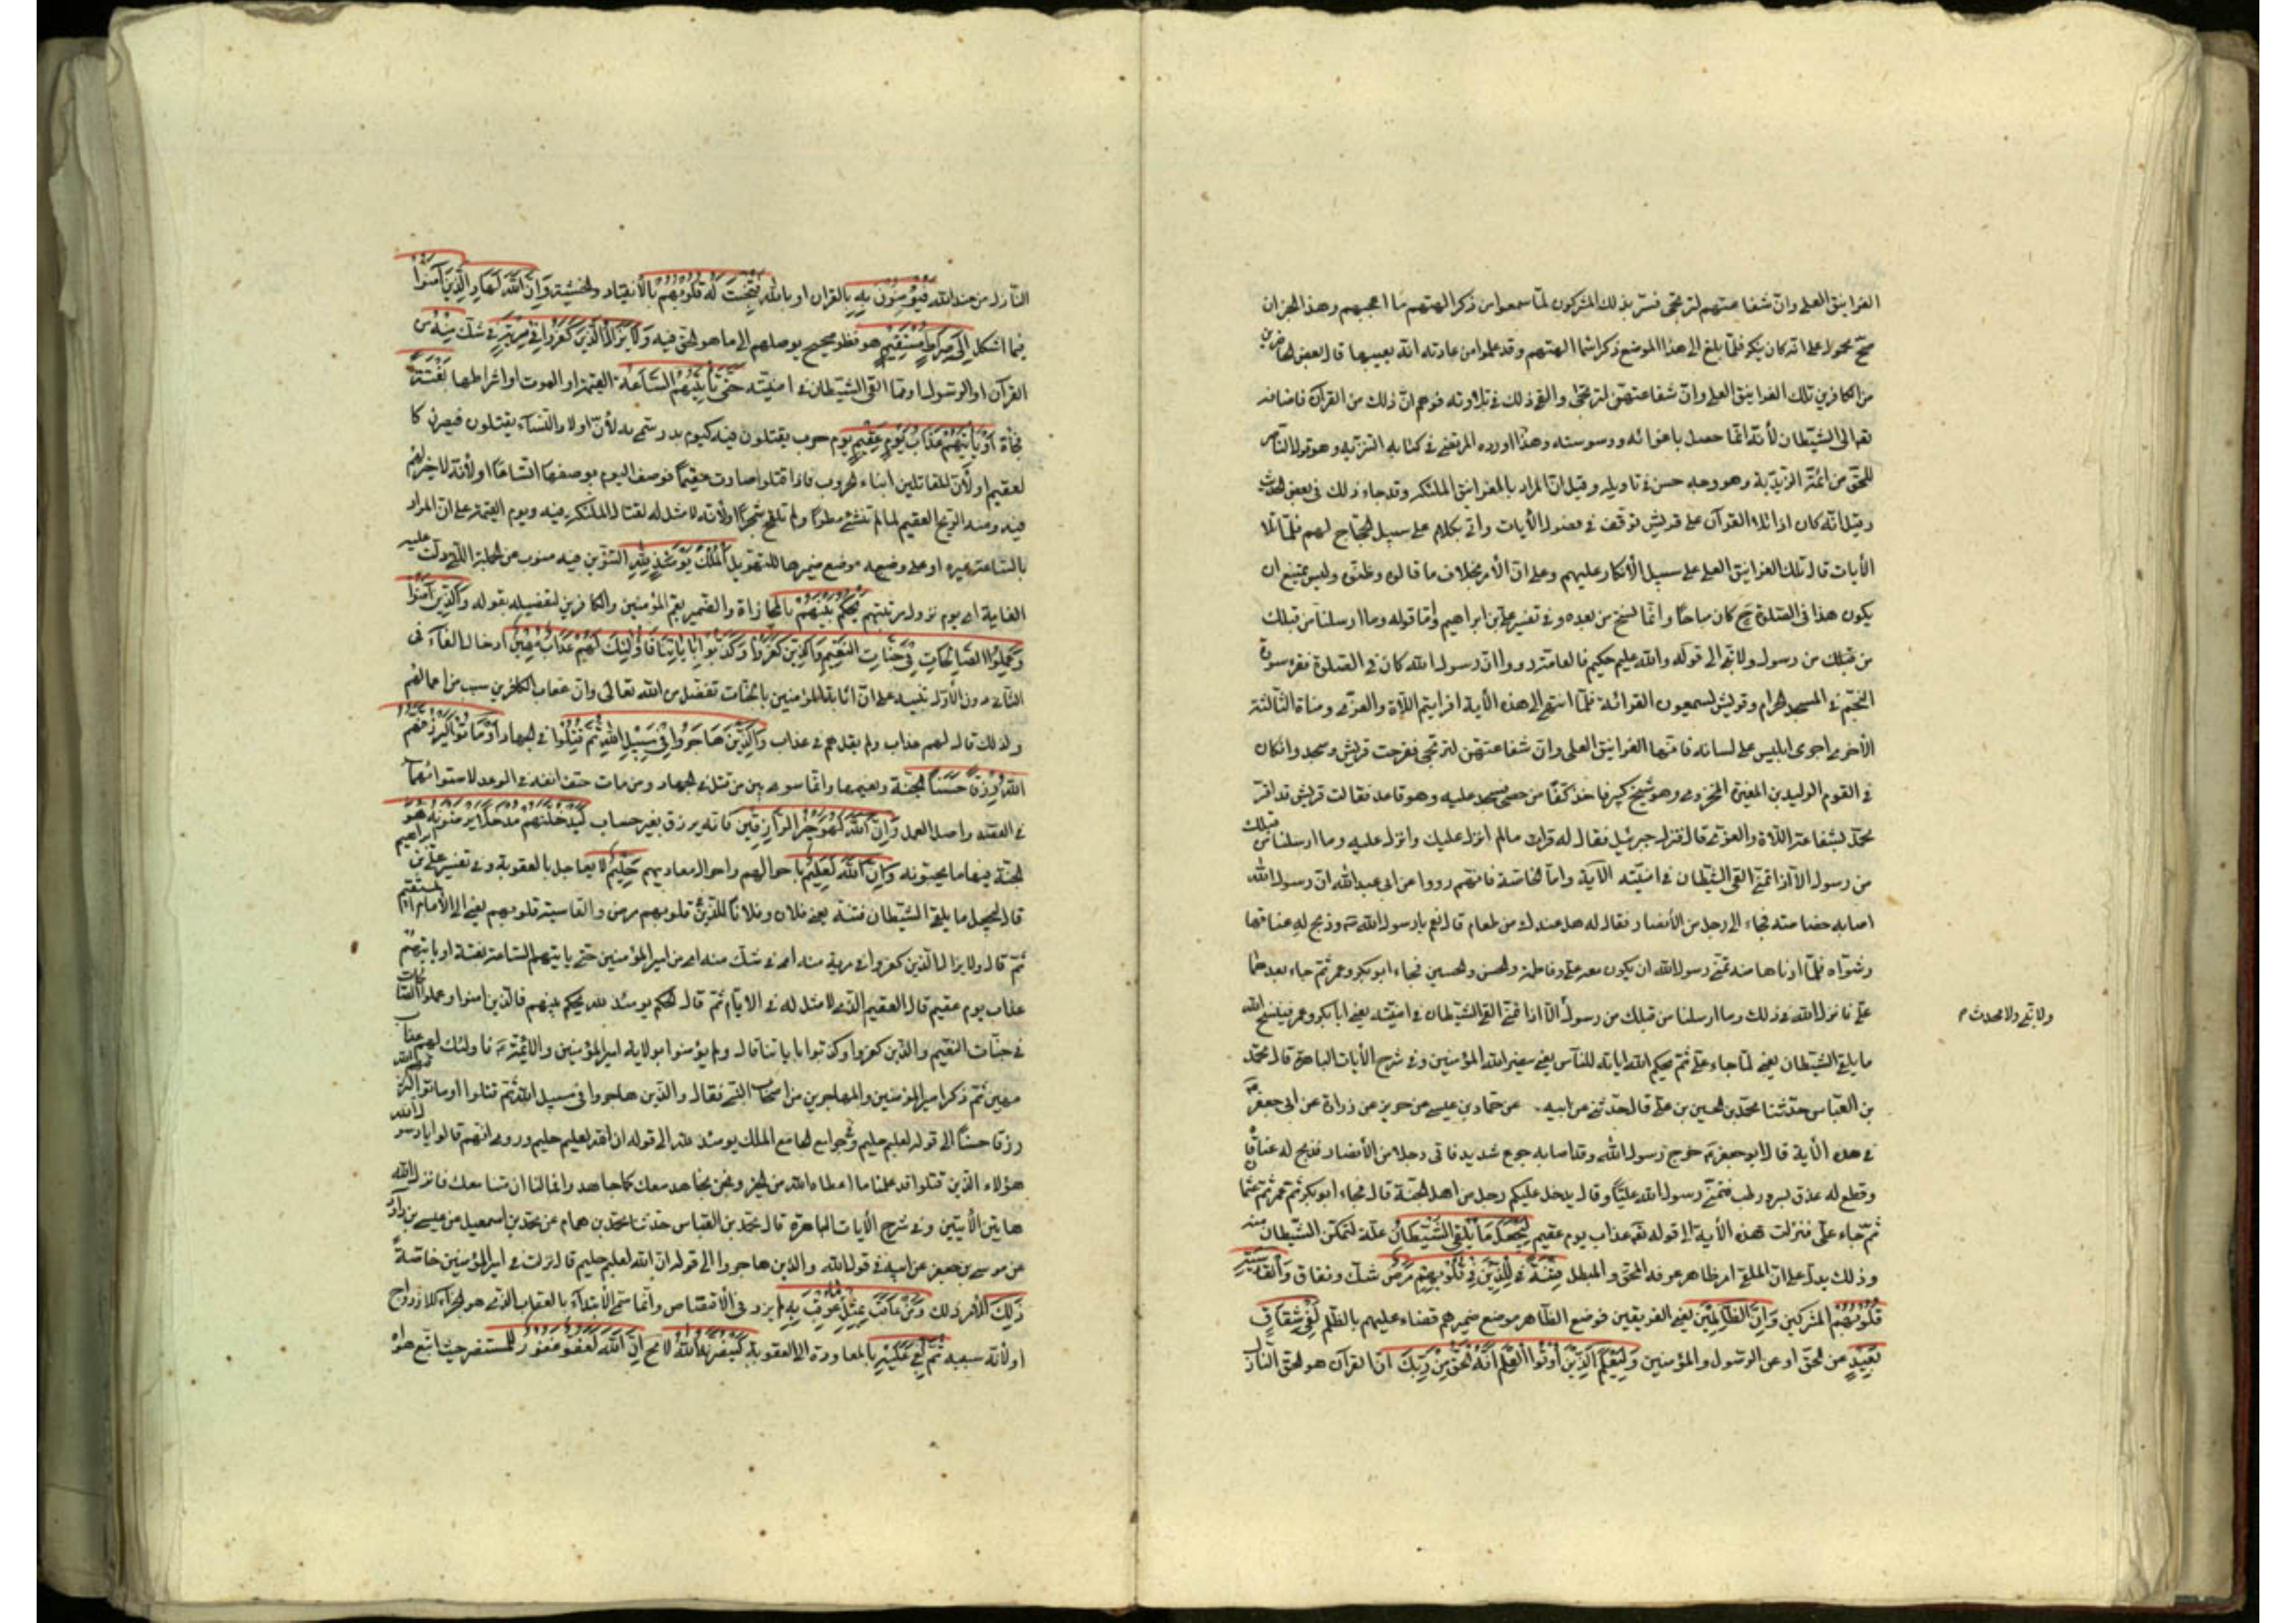 الغرانيق العلى وان شفاعتهم لترتجى فسر بذلك المشركون لما سمعوا من ذكر الهتهم ما اعجبهم وهذا الخبر ان
صح محمول على انه كان يتكر فلما بلغ الى هذا الموضع ذكر اسماء الهتهم وقد علموا من عادته انه يعيبها قال بعض الحاضرين
من الكافرين تلك الغرانيق العلى وان شفاعتهن لترتجى والقى ذلك في تلاوته توهم ان ذلك من القرآن فاضافه
الله الى الشيطان لأنه انما حصل باغوائه ووسوسته وهذا اورده المرتضى في كتابه التنزيه وهو قول الناصر
للحق من ائمة الزيدية وهو وجه حسن في تاويله وقيل ان المراد بالغرانيق الملئكة وقد جاء ذلك في بعض الحديث
وقيل انه كان اذا تلا القرآن على قريش توقف في فصول الأيات واتى بكلام على سبيل الحجاج لهم فلما تلا
الأيات قال تلك الغرانيق العلى على سبيل الأنكار عليهم وعلى ان الأمر بخلاف ما قالوه وظنوه وليس يمتنع ان
يكون هذا في الصلوة ح كان مباحا وانما نسخ من بعده وفي تفسير علي بن ابراهيم واما قوله وما ارسلنا من قبلك
من قبلك من رسول ولا نبي الى قوله والله عليم حكيم فالعامة رووا ان رسول الله كان في الصلوة فقرء سورة
النجم في المسجد الحرام وقريش يسمعون القرائة فلما انتهى الى هذه الأية افرايتم اللاة والعزى ومناة الثالثة
الأخرى اجرى ابليس على لسانه فانها الغرانيق العلى وان شفاعتهن لترتجى ففرحت قريش وسجدوا وكان
في القوم الوليد بن المغيرة المخزومى وهو شيخ كبير فاخذ كفا من حصى فسجد عليه وهو قاعد فقالت قريش قد اقر
محمد بشفاعة اللاة والعزى قال فنزل جبرئيل فقال له قرات مالم انزل عليك وانزل عليه وما ارسلنا من قبلك
من رسول الا اذا تمنى القى الشيطان في امنيته الآية واما الخاصة فانهم رووا عن ابى عبدالله ان رسول الله
اصابه خصاصة فجاء الى رجل من الأنصار فقال له هل عندك من طعام قال نعم يا رسول الله وذبح له عناقا
وشواه فلما ادناها منه تمنى رسول الله ان يكون معه علي وفاطمة والحسن والحسين فجاء ابوبكر وعمر ثم جاء بعدهما
علي فانزل الله في ذلك وما ارسلنا من قبلك من رسول الا اذا تمنى القى الشيطان في امنيته يعني ابابكر وعمر فينسخ الله
ولا نبي ولا محدث م
ما يلقي الشيطان يعني لما جاء علي ثم يحكم الله اياته للناس يعني ينصر الله امير المؤمنين وفي شرح الأيات الباهرة قال محمد
بن العباس حدثنا محمد بن الحسين بن علي قال حدثني عن ابيه عن حماد بن عيسى عن حريز عن زرارة عن ابى جعفر
في هذه الأية قال ابو جعفر خرج رسول الله وقد اصابه جوع شديد فاتى رجلا من الأنصار فذبح له عناقا
وقطع له عذق بسر ورطب فتمنى رسول الله عليا وقال يدخل عليكم رجل من اهل الجنة قال فجاء ابوبكر ثم عمر ثم عثما
ثم جاء علي فنزلت هذه الأية الى قوله عذاب يوم عقيم لِيَجْعَلَ مَا يُلْقِى الشَّيْطَانُ علة لتمكن الشيطان منه
وذلك يدل على ان الملقى امر ظاهر عرفه المحق والمبطل فِتْنَةً لِلَّذِينَ فِي قُلُوبِهِمْ مَرَضٌ شك ونفاق وَالْقَاسِيَةِ
قُلُوبُهُمْ المشركين وَاِنَّ الظَّالِمِينَ يعني الفريقين فوضع الظاهر موضع ضميرهم قضاء عليهم بالظلم لَفِي شِقَاقٍ
بَعِيدٍ عن الحق او عن الرسول والمؤمنين وَلِيَعْلَمَ الَّذِينَ أُوتُوا الْعِلْمَ اَنَّهُ الْحَقُّ مِنْ رَبِّكَ ان القرآن هو الحق النازل
النازل من عند الله فَيُؤْمِنُونَ بِهِ بالقران او بالله فَتُخْبِتَ لَهُ قُلُوبُهُمْ بالأنقياد والخشية وَاِنَّ اللَّهَ لَهَادِ الَّذِينَ آمَنُوا
فيما اشكل اِلَى صِرَاطٍ مُسْتَقِيمٍ هو نظر صحيح يوصلهم الى ما هو الحق فيه وَلَا يَزَالُ الَّذِينَ كَفَرُوا فِي مِرْيَةٍ في شك مِنْهُ من
القرآن او الرسول او مما القى الشيطان في امنيته حَتَّى تَأْتِيَهُمُ السَّاعَةُ القيمة او الموت او اشراطها بَغْتَةً
فجأة اَوْ يَأْتِيَهُمْ عَذَابُ يَوْمٍ عَقِيمٍ يوم حرب يقتلون فيه كيوم بدر سمى به لأن اولاد النساء يقتلون فيصرن كا
لعقيم او لأن المقاتلين ابناء الحروب فاذا قتلوا صارت عقيما فوصف اليوم بوصفها اتساعا او لأنه لا خير لهم
فيه ومنه الريح العقيم لما لم تنشئ مطرا ولم تلقح شجرا او لأنه لا مثل له لقتال الملئكة فيه ويوم القيمة على ان المراد
بالساعة غيره او على وضعه موضع ضميرها للتهويل اَلْمُلْكُ يَوْمَئِذٍ لِلَّهِ التنوين فيه منوب عن الجملة التي دلت عليه
الغاية اى يوم نزول مرتبتهم يَحْكُمُ بَيْنَهُمْ بالمجازاة والضمير يعم المؤمنين والكافرين لتفصيله بقوله وَالَّذِينَ آمَنُوا
وَعَمِلُوا الصَّالِحَاتِ فِي جَنَّاتِ النَّعِيمِ وَالَّذِينَ كَفَرُوا وَكَذَّبُوا بِاٰيَاتِنَا فَاُولٰئِكَ لَهُمْ عَذَابٌ مُهِينٌ ادخال الفاء في
الثاني دون الأول تنبيه على ان اثابة المؤمنين بالجنات تفضل من الله تعالى وان عقاب الكافرين سبب من اعمالهم
ولذلك قال لهم عذاب ولم يقل هم في عذاب وَالَّذِينَ هَاجَرُوا فِي سَبِيلِ اللَّهِ ثُمَّ قُتِلُوا في الجهاد اَوْ مَاتُوا لَيَرْزُقَنَّهُمُ
اللَّهُ رِزْقًا حَسَنًا الجنة ونعيمها وانما سوى بين من قتل في الجهاد ومن مات حتف انفه في الوعد لاستوائهما
في القصد واصل العمل وَاِنَّ اللَّهَ لَهُوَ خَيْرُ الرَّازِقِينَ فانه يرزق بغير حساب لَيُدْخِلَنَّهُمْ مُدْخَلًا يَرْضَوْنَهُ هو
الجنة فيها ما يحبونه وَاِنَّ اللَّهَ لَعَلِيمٌ باحوالهم واحوال معاديهم حَلِيمٌ لا يعاجل بالعقوبة وفي تفسير علي بن ابراهيم
قال ليجعل ما يلقي الشيطان فتنة يعني فلان وفلانا للذين في قلوبهم مرض والقاسية قلوبهم يعني الى الأمام المستقيم
ثم قال ولا يزال الذين كفروا في مرية منه اى في شك منه اى من امير المؤمنين حتى ياتيهم الساعة بغتة او ياتيهم
عذاب يوم عقيم قال العقيم الذي لا مثل له في الايام ثم قال الملك يومئذ لله يحكم بينهم فالذين امنوا وعملوا الصالحات
في جنات النعيم والذين كفروا وكذبوا باياتنا قال ولم يؤمنوا بولاية امير المؤمنين والأئمة فاولئك لهم عذاب
مهين ثم ذكر امير المؤمنين والمهاجرين من اصحاب النبي فقال والذين هاجروا في سبيل الله ثم قتلوا او ماتوا ليرزقنهم الله
رزقا حسنا الى قوله لعليم حليم وفي جوامع الجامع الملك يومئذ لله الى قوله ان الله لعليم حليم وروى انهم قالوا يا رسول الله
هؤلاء الذين قتلوا قد علمنا ما اعطاه الله من الخير ونحن نجاهد معك كما جاهدوا فمالنا ان متنا معك فانزل الله
هاتين الأيتين وفي شرح الأيات الباهرة قال محمد بن العباس حدثنا محمد بن همام عن محمد بن اسمعيل عن عيسى بن داود
عن موسى بن جعفر عن ابيه في قول الله والذين هاجروا الى قوله ان الله لعليم حليم قال نزلت في امير المؤمنين خاصة
ذَلِكَ الأمر ذلك وَمَنْ عَاقَبَ بِمِثْلِ مَا عُوقِبَ بِهِ لم يزد في الأقتصاص وانما سمى الأبتداء بالعقاب الذي هو الجزاء للازدواج
او لأنه سببه ثُمَّ بُغِيَ عَلَيْهِ بالمعاودة الى العقوبة لَيَنْصُرَنَّهُ اللَّهُ لا مح اِنَّ اللَّهَ لَعَفُوٌّ غَفُورٌ للمستنصر حيث اتبع هواه